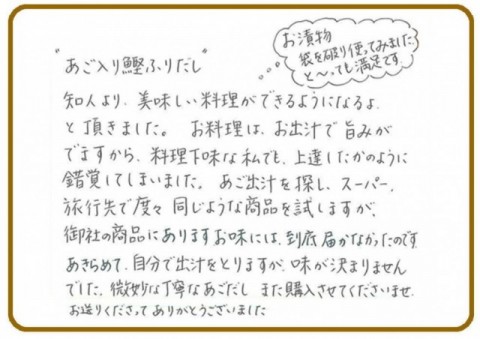 "あご入り鰹ふりだし"
お漬物
袋を破り使ってみました
と〜っても満足です
知人より、美味しい料理ができるようになるよ、
と頂きました。 お料理は、お出汁で旨みが
でますから、料理下味な私でも、上達したかのように
錯覚してしまいました。 あご出汁を探し、スーパー、
旅行先で度々同じような商品を試しますが、
御社の商品にありますお味には、到底届かなかったのです。
あきらめて、自分で出汁をとりますが、味が決まりません
でした。微妙な丁寧なあごだし また購入させてくださいませ。
お送りくださって ありがとうございました